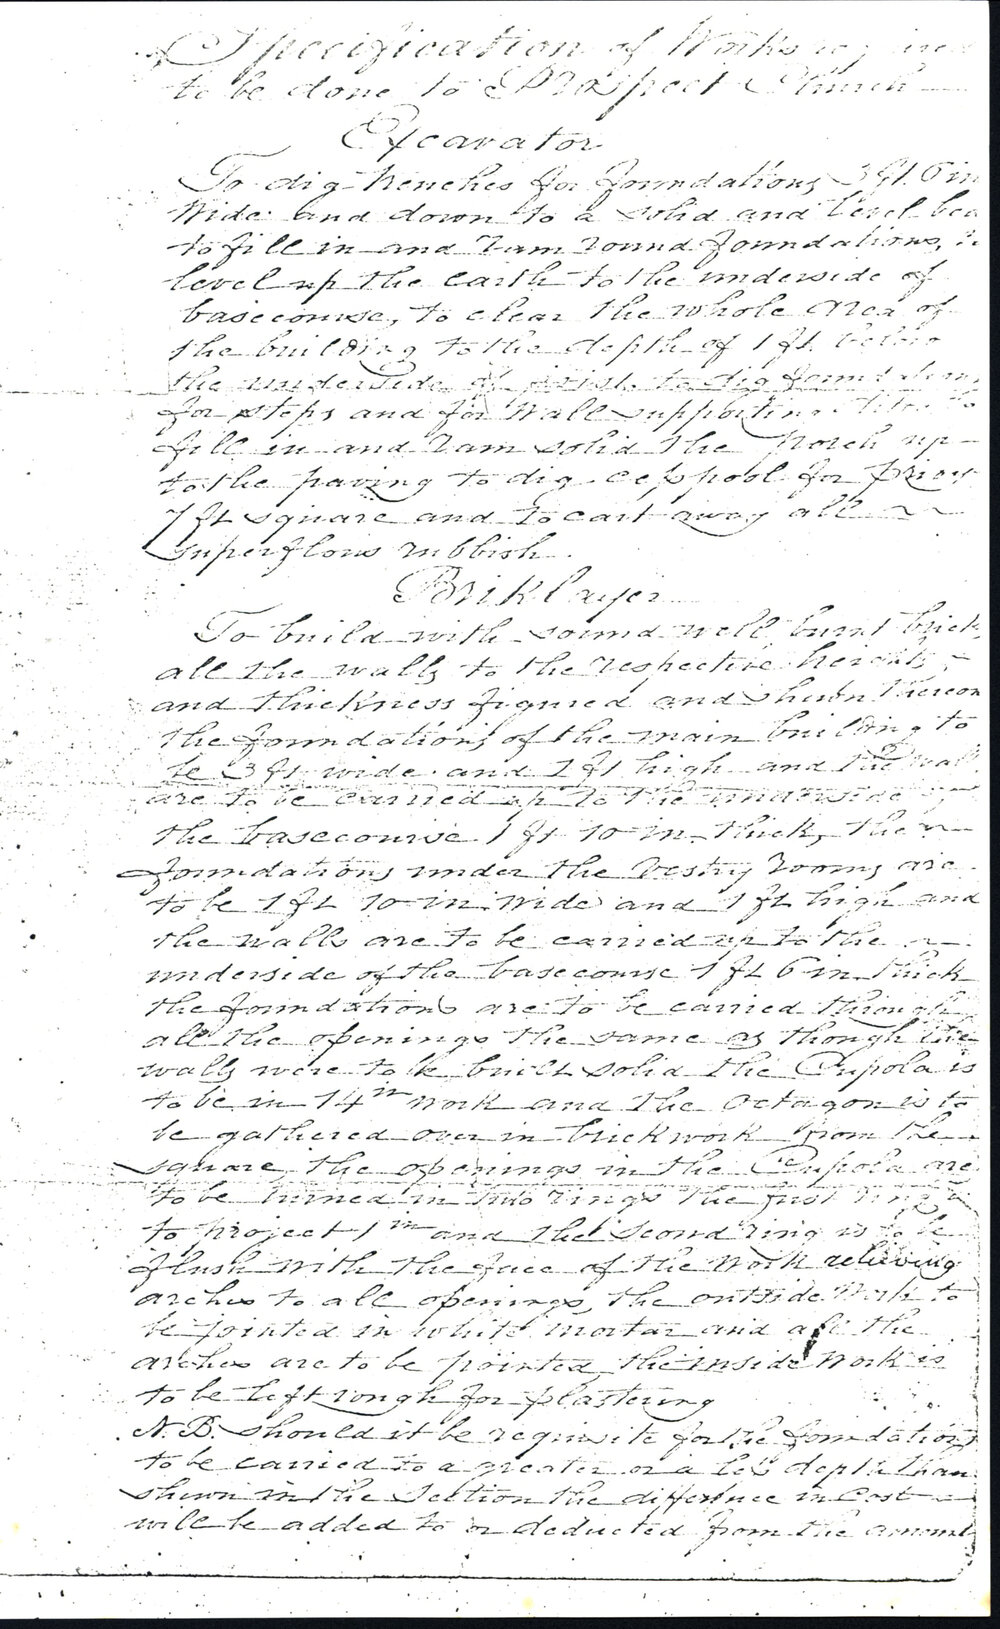 Specification of Works required
to be done to Prospect Church
Excavator
To dig trenches for foundations 3 ft. 6 in
wide and down to a solid and level bed
to fill in and ram round foundations, to
level up the earth to the underside of
basecourse, to clear the whole area of
the building to the depth of 1 ft. below
the underside of joist to dig foundations
for steps and for wall supporting
fill in and ram solid the porch up
to the paving to dig cesspool for privy
7 ft square and to cart away all
superflous rubbish.
Briklayer
To build with sound well burnt bricks
all the walls to the respective heights
and thickness figured and shewn thereon
the foundations of the main building to
be 3 ft wide and 2 ft high and the walls
are to be carried up to the underside of
the basecourse 1 ft 10 in thick, the
foundations under the vestry rooms are
to be 1 ft 10 in wide and 1 ft high and
the walls are to be carried up to the
underside of the basecourse 1 ft 6 in thick
the foundations are to be carried through
all the openings the same as though the
walls were to be built solid the Cupola is
to be in 14 in work and the octagon is to
be gathered over in brickwork from the
square, the openings in the Cupola are
to be turned in two rings the first ring is
to project 1 in and the second ring is to be
flush with the face of the work relieving
arches to all openings, the outside work to
be jointed in white mortar and all the
arches are to be pointed the inside work is
to be left rough for plastering
N.B. should it be requisite for the foundations
to be carried to a greater or a less depth than
shewn in the section the difference in cost
will be added to or deducted from the amount